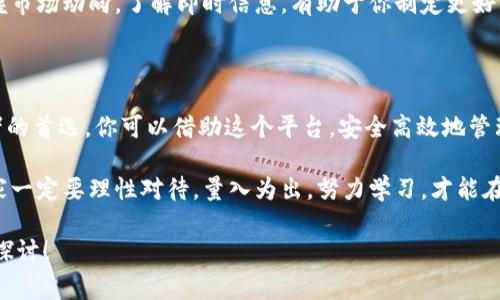 市场动向，了解即时信息，有助于你制定更好
的首选，你可以借助这个平台，安全高效地管
一定要理性对待，量入为出，努力学习，才能在
探讨！